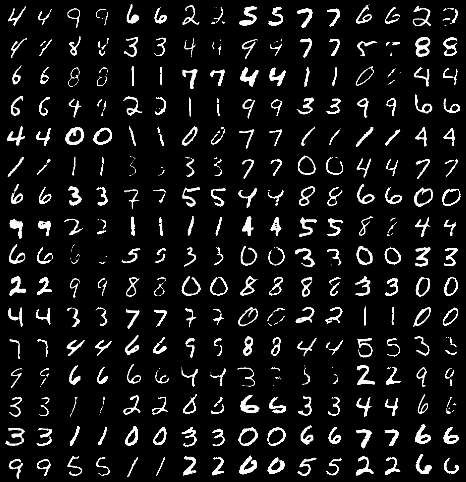 4 4 9 9 6 6 2 2 5 5 7 7 6 6 2 2
4 4 8 8 3 3 4 4 9 9 7 7 5 8 8
6 6 8 8 1 1 7 7 4 4 1 1 0 4 4
6 6 4 4 2 2 1 1 9 9 3 3 9 9 6 6
4 4 0 0 1 1 0 0 7 7 1 1 1 1 4 4
1 1 1 1 3 3 3 7 7 0 0 4 4 7 7
6 6 3 3 7 7 5 5 4 4 8 8 6 6 0 0
9 9 2 2 1 1 1 1 4 4 5 5 8 8 4 4
6 6 6 5 5 3 3 0 0 3 3 0 0 3 3
2 2 9 9 8 8 0 0 8 8 8 8 3 3 0 0
4 4 3 3 7 7 7 7 0 0 2 2 1 1 0 0
7 7 4 4 6 6 9 9 8 8 4 4 5 5 3 3
9 9 6 6 6 6 4 4 3 3 3 3 2 2 9 9
3 3 1 1 2 2 8 8 6 6 3 3 4 4 6 6
3 3 1 1 0 0 3 3 0 0 6 6 7 7 6 6
9 9 5 5 1 1 2 2 0 0 5 5 2 2 6 6